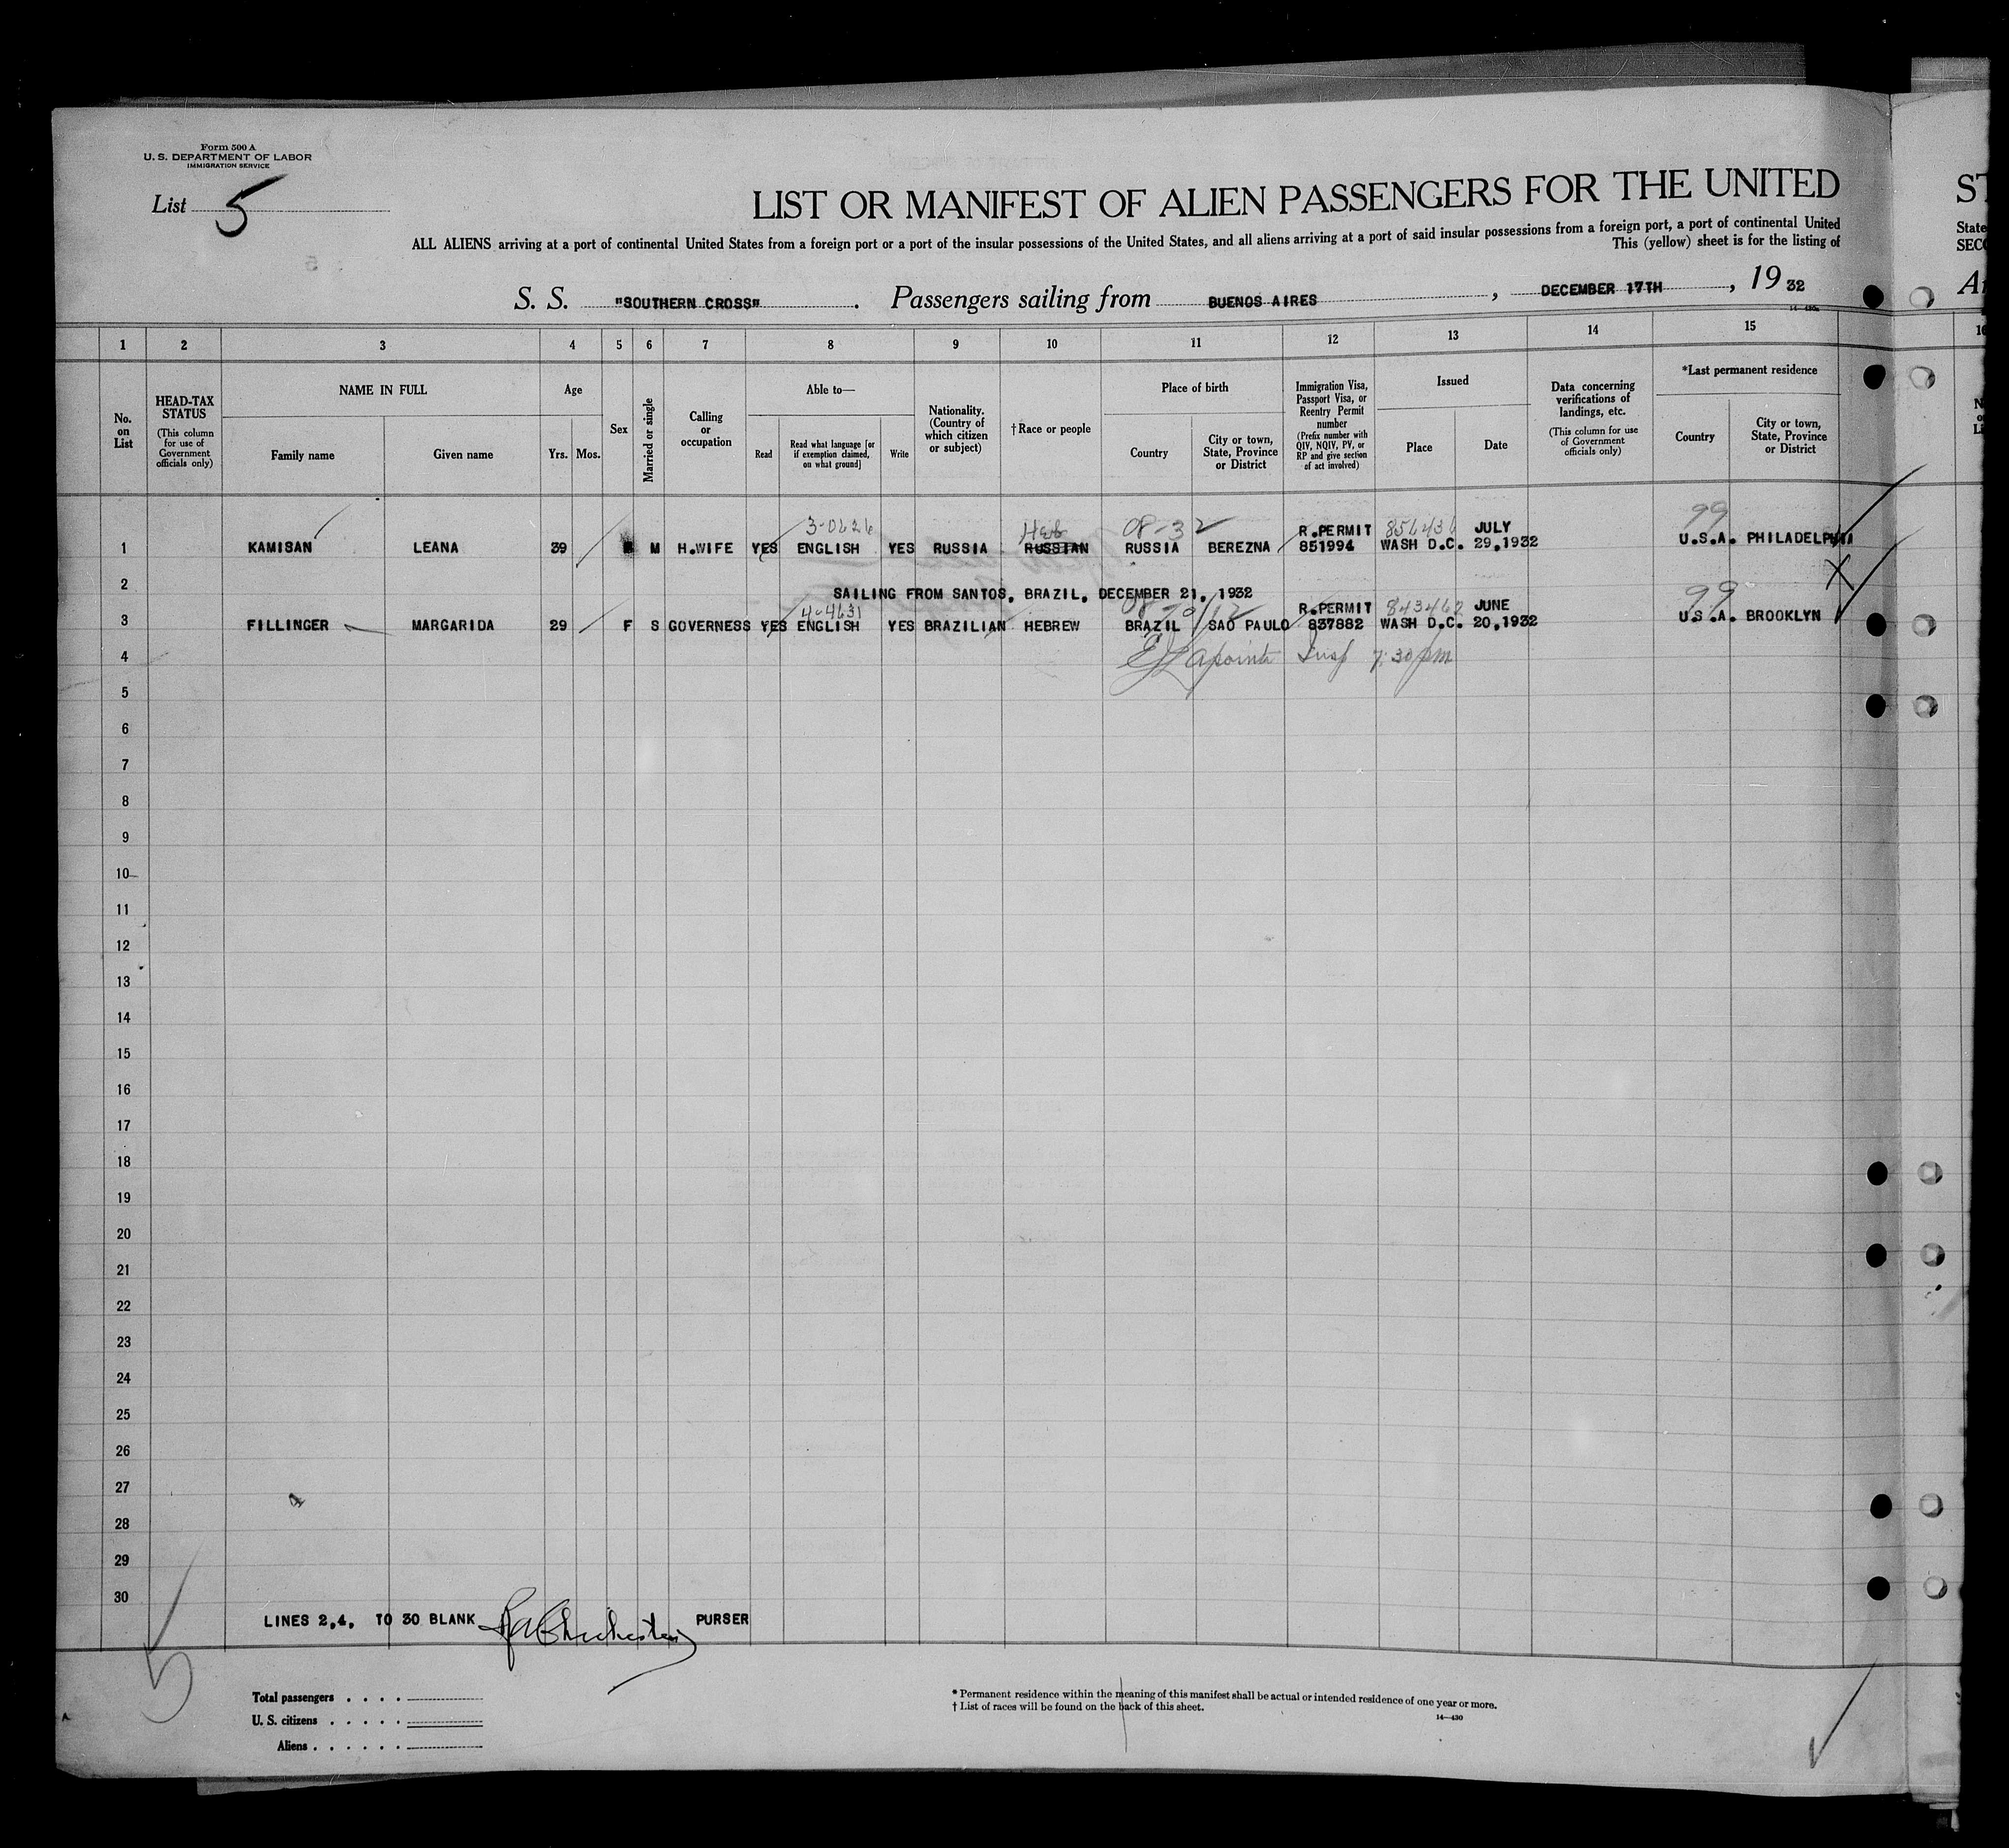 Form 500 A
U. S. DEPARTMENT OF LABOR
IMMIGRATION SERVICE
List 5
LIST OR MANIFEST OF ALIEN PASSENGERS FOR THE UNITED
ST
ALL ALIENS arriving at a port of continental United States from a foreign port or a port of the insular possessions of the United States, and all aliens arriving at a port of said insular possessions from a foreign port, a port of continental United
State
This (yellow) sheet is for the listing of
SECO
S. S. "SOUTHERN CROSS". Passengers sailing from BUENOS AIRES, DECEMBER 17TH, 19 32
14—430a
1 2 3 4 5 6 7 8 9 10 11 12 13 14 15
No. on List
HEAD-TAX STATUS (This column for use of Government officials only)
NAME IN FULL
Family name
Given name
Age
Yrs. Mos.
Sex
Married or single
Calling or occupation
Able to—
Read
Read what language [or if exemption claimed, on what ground]
Write
Nationality. (Country of which citizen or subject)
†Race or people
Place of birth
Country
City or town, State, Province or District
Immigration Visa, Passport Visa, or Reentry Permit number (Prefix number with QIV, NQIV, PV, or RP and give section of act involved)
Issued
Place
Date
Data concerning verifications of landings, etc. (This column for use of Government officials only)
*Last permanent residence
Country
City or town, State, Province or District
3-0626 Heb 08-32 R.PERMIT JULY 99
1 KAMISAN LEANA 39 M H.WIFE YES ENGLISH YES RUSSIA RUSSIAN RUSSIA BEREZNA 851994 WASH D.C. 29,1932 U.S.A. PHILADELPHIA
2 SAILING FROM SANTOS, BRAZIL, DECEMBER 21, 1932
4-4631 R.PERMIT 843462 JUNE 99
3 FILLINGER MARGARIDA 29 F S GOVERNESS YES ENGLISH YES BRAZILIAN HEBREW BRAZIL SAO PAULO 837882 WASH D.C. 20,1932 U.S.A. BROOKLYN
4 Lapointe Insp 7:30 pm
5
6
7
8
9
10
11
12
13
14
15
16
17
18
19
20
21
22
23
24
25
26
27
28
29
30
LINES 2,4, TO 30 BLANK PURSER
5
Total passengers
U. S. citizens
Aliens
* Permanent residence within the meaning of this manifest shall be actual or intended residence of one year or more.
† List of races will be found on the back of this sheet.
14—430